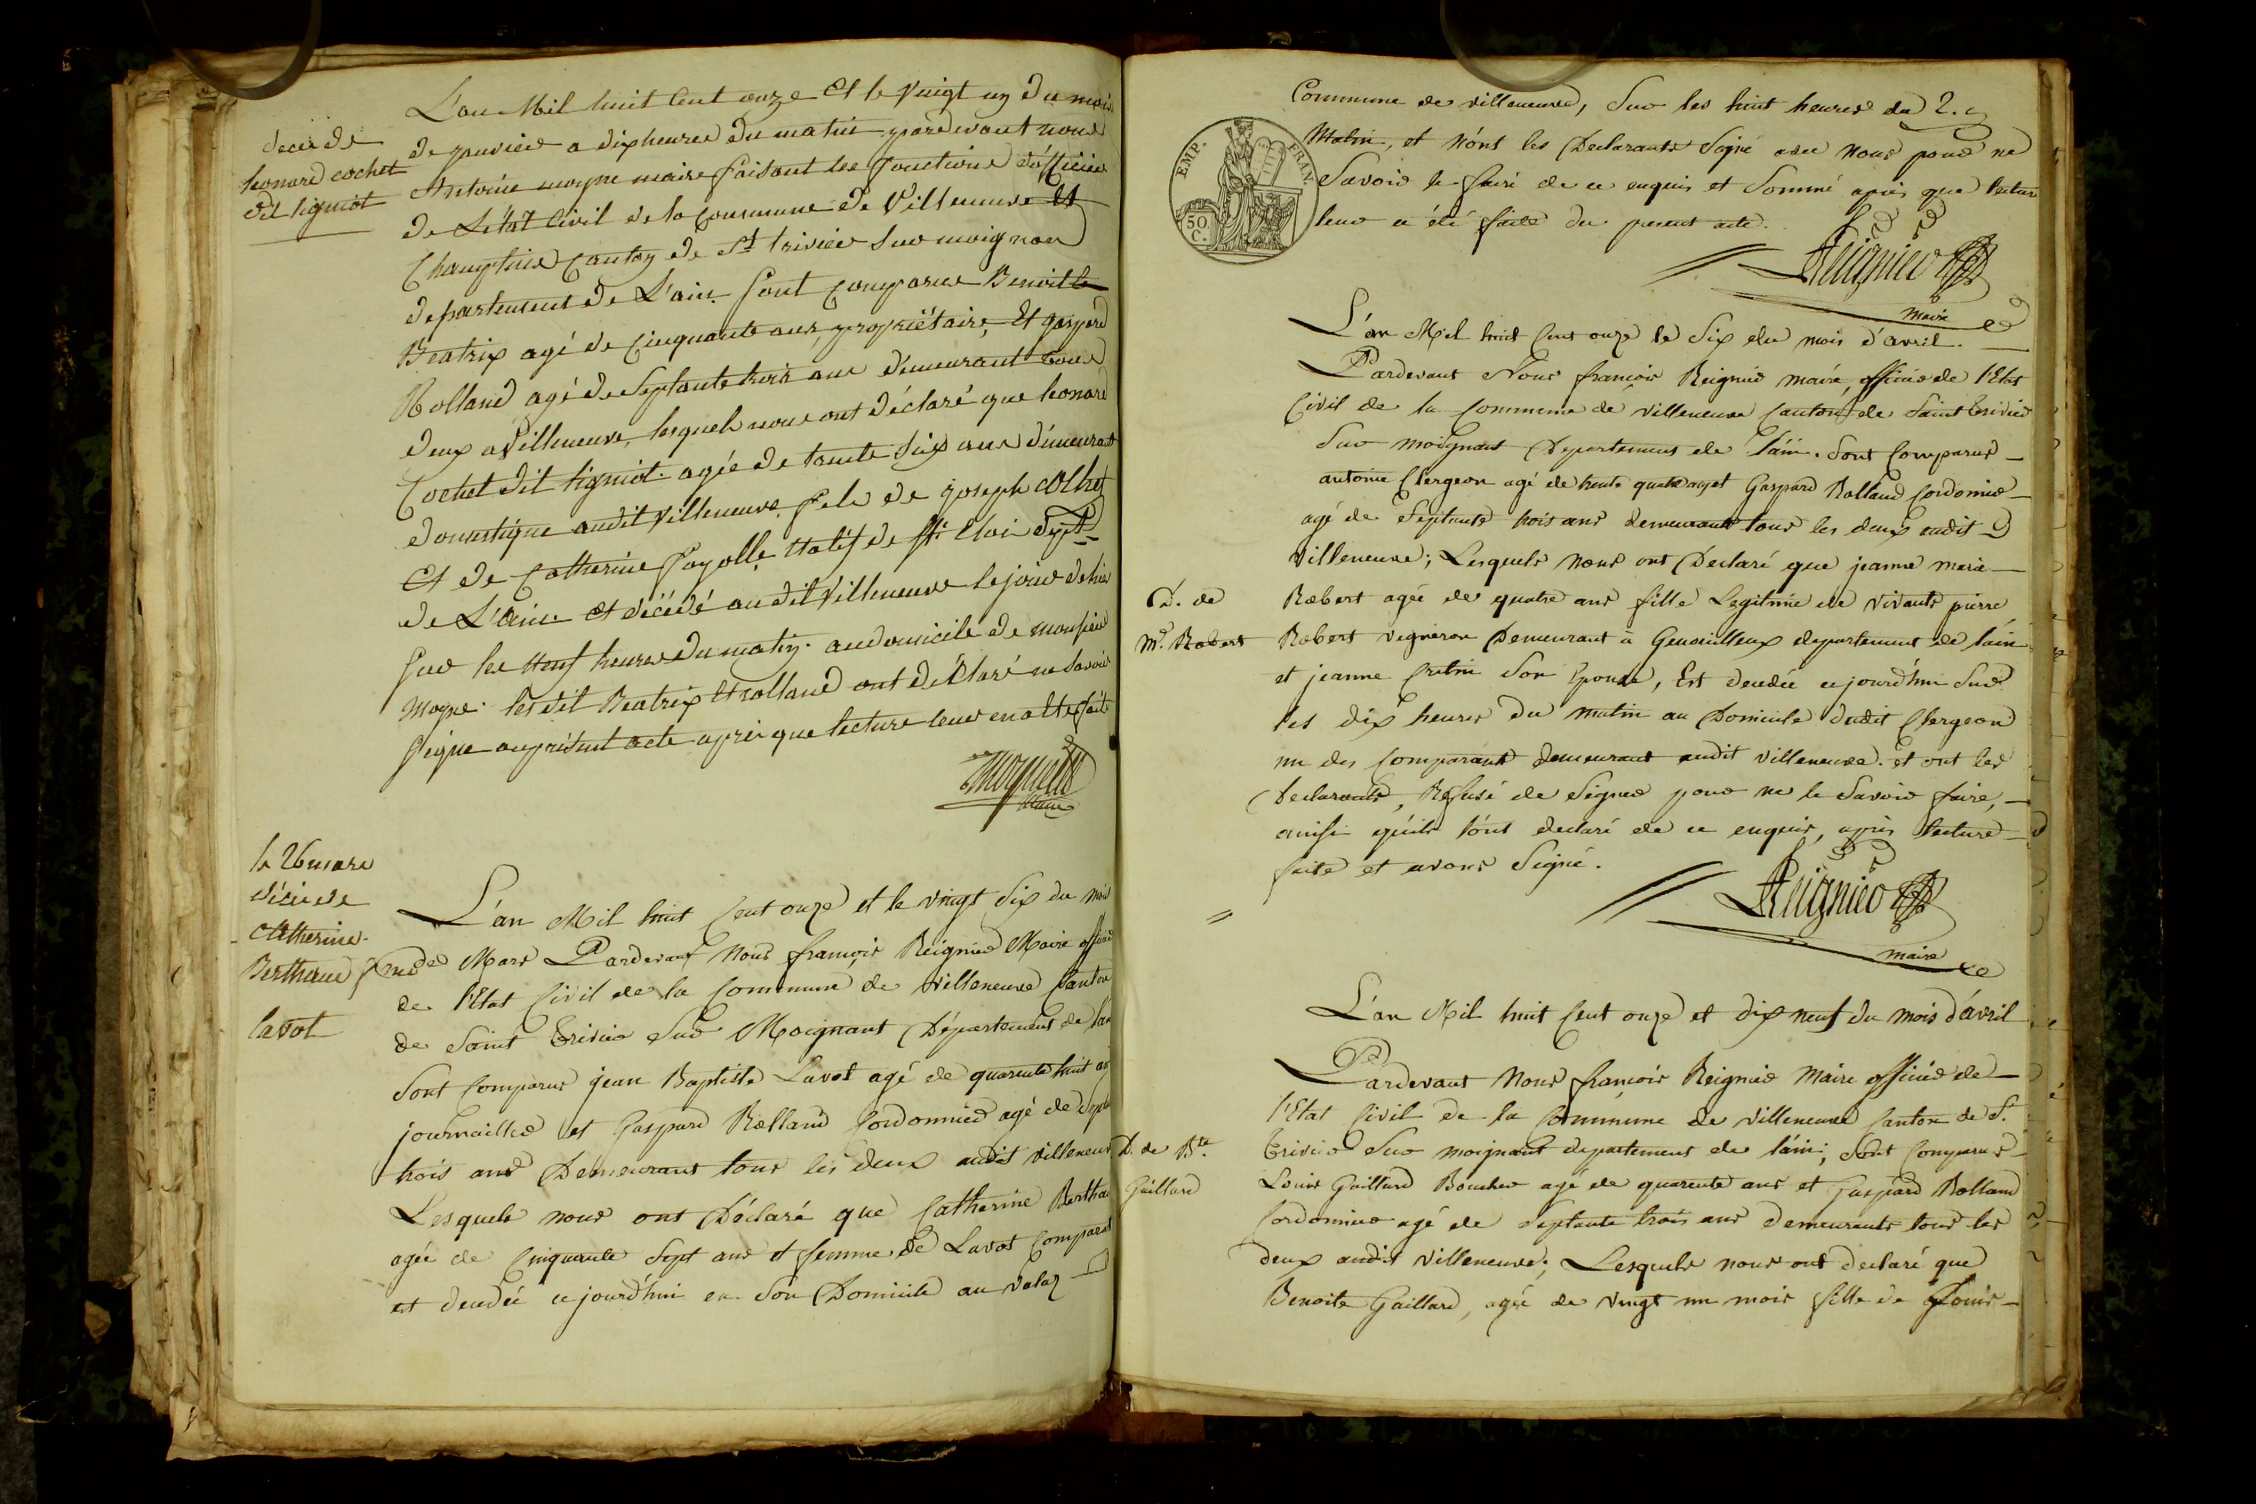 decè de
leonard cochet
dit ligniot
L'an Mil huit Cent onze Et le Vingt un du mois
de janvier a dix heures du matin pardevant nous
Antoine moyne maire faisant les fonctions d'officier
de L'état Civil de la Commune de Villeneuve Et
Champteins Canton de St trivier sur moignan
departement de L'ain. Sont Comparus Benoit
Beatrix agé de Cinquante ans, propriétaire, Et gaspard
Rolland agé de Septante trois ans demeurant tous
deux a Villeneuve, lesquels nous ont déclaré que leonard
Cochet dit ligniot agée de trante Six ans demeurant
domestique audit Villeneuve fils de joseph COChet
Et de Catherine Payolle natif de St Eloi dept
de L'ain Et décédé audit Villeneuve le jour d'hier
Sur les neuf heures du matin au domicile de monsieur
moyne. les dit Beatrix Et rolland ont déclaré ne Savoir
Signe au présent acte aprés que lecture leur en a été faite
Moyne
Maire
le 26 mars
décès de
Catherine
Berthaud fme
Lavot
L'an Mil huit Cent onze et le vingt Six du mois
de Mars Pardevant Nous françois Reignier Maire officier
de l'Etat Civil de la Commune de Villeneuve Canton
de Saint Trivier Sur Moignant Département de l'ain
Sont Comparus jean Baptiste Lavot agé de quarente huit ans
journaillier et Gaspard Rolland Cordonnier agé de Septante
trois ans Demeurant tous les deux audit Villeneuve
Lesquels nous ont Déclaré que Catherine Berthaud
agée de Cinquante Sept ans et femme de Lavot Comparant
est decedée ce jourd'hui en Son Domicile au
Commune de villeneuve, Sur les huit heures du
Matin, et n'ont les Declarants Signé avec Nous pour ne
Savoir le faire de ce enquis et Sommé après que lectur
leur a été faite du present acte.
EMP. FRAN.
50 C.
Reignier
Maire
L'an Mil huit Cent onze le Six du mois d'avril.
Pardevant Nous françois Reignier maire, officier de l'Etat
Civil de la Commune de Villeneuve Canton de Saint Trivier
Sur Moignant Departement de l'ain. Sont Comparus
antoine Clergeon agé de trente quatre ans et Gaspard Rolland Cordonnier
agé de Septante trois ans demeurants tous les deux audit
Villeneuve; Lesquels nous ont Declaré que jeanne marie
D. de
Me. Robert
Robert agée de quatre ans fille Legitime de vivants pierre
Robert vigneron Demeurant à Genouilleux departement de l'ain
et jeanne Son Epouse, Est decedée ce jourd'hui Sur
les dix heures du matin au Domicile dudit Clergeon
un des Comparants demeurant audit villeneuve. et ont les
Declarants, Refusé de Signer pour ne le Savoir faire,
ainsi qu'ils l'ont declaré de ce enquis, après lecture
faite et avons Signé.
Reignier
maire
L'an Mil huit Cent onze et dix neuf du mois d'avril
Pardevant Nous françois Reignier Maire officier de
l'Etat Civil de la Commune de Villeneuve Canton de St.
Trivier Sur moignant departement de l'ain; Sont Comparus
D. de Bte.
Gaillard
Louis Gaillard Boucher agé de quarente ans et Gaspard Rolland
Cordonnier agé de Septante trois ans demeurants tous les
deux audit Villeneuve; Lesquels nous ont declaré que
Benoite Gaillard, agée de vingt un mois fille de Louis